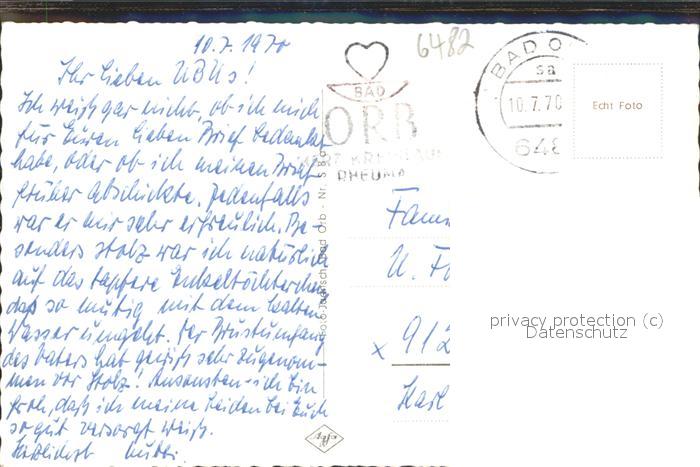 10.7.1970
Ihr lieben UBUs!
Ich weiß gar nicht, ob ich mich
für Euren lieben Brief bedankt
habe, oder ob ich meinen Brief
früher abschickte. Jedenfalls
war er mir sehr erfreulich. Be-
sonders stolz war ich natürlich
auf das tapfere Enkeltöchterchen
daß so mutig mit dem kalten
Wasser umgeht. Der Brustumfang
des Vaters hat gewiß sehr zugenom-
men vor Stolz! Ansonsten ich bin
froh, daß ich meine beiden bei Euch
so gut versorgt weiß.
Herzlichst Mutti
6482
BAD
ORB
RHEUMA
BAD O
sa
10.7.70
648
Echt Foto
Bad Orb - Nr. 5
Fam
U. F
x 912
Karl
Agfa
privacy protection (c)
Datenschutz